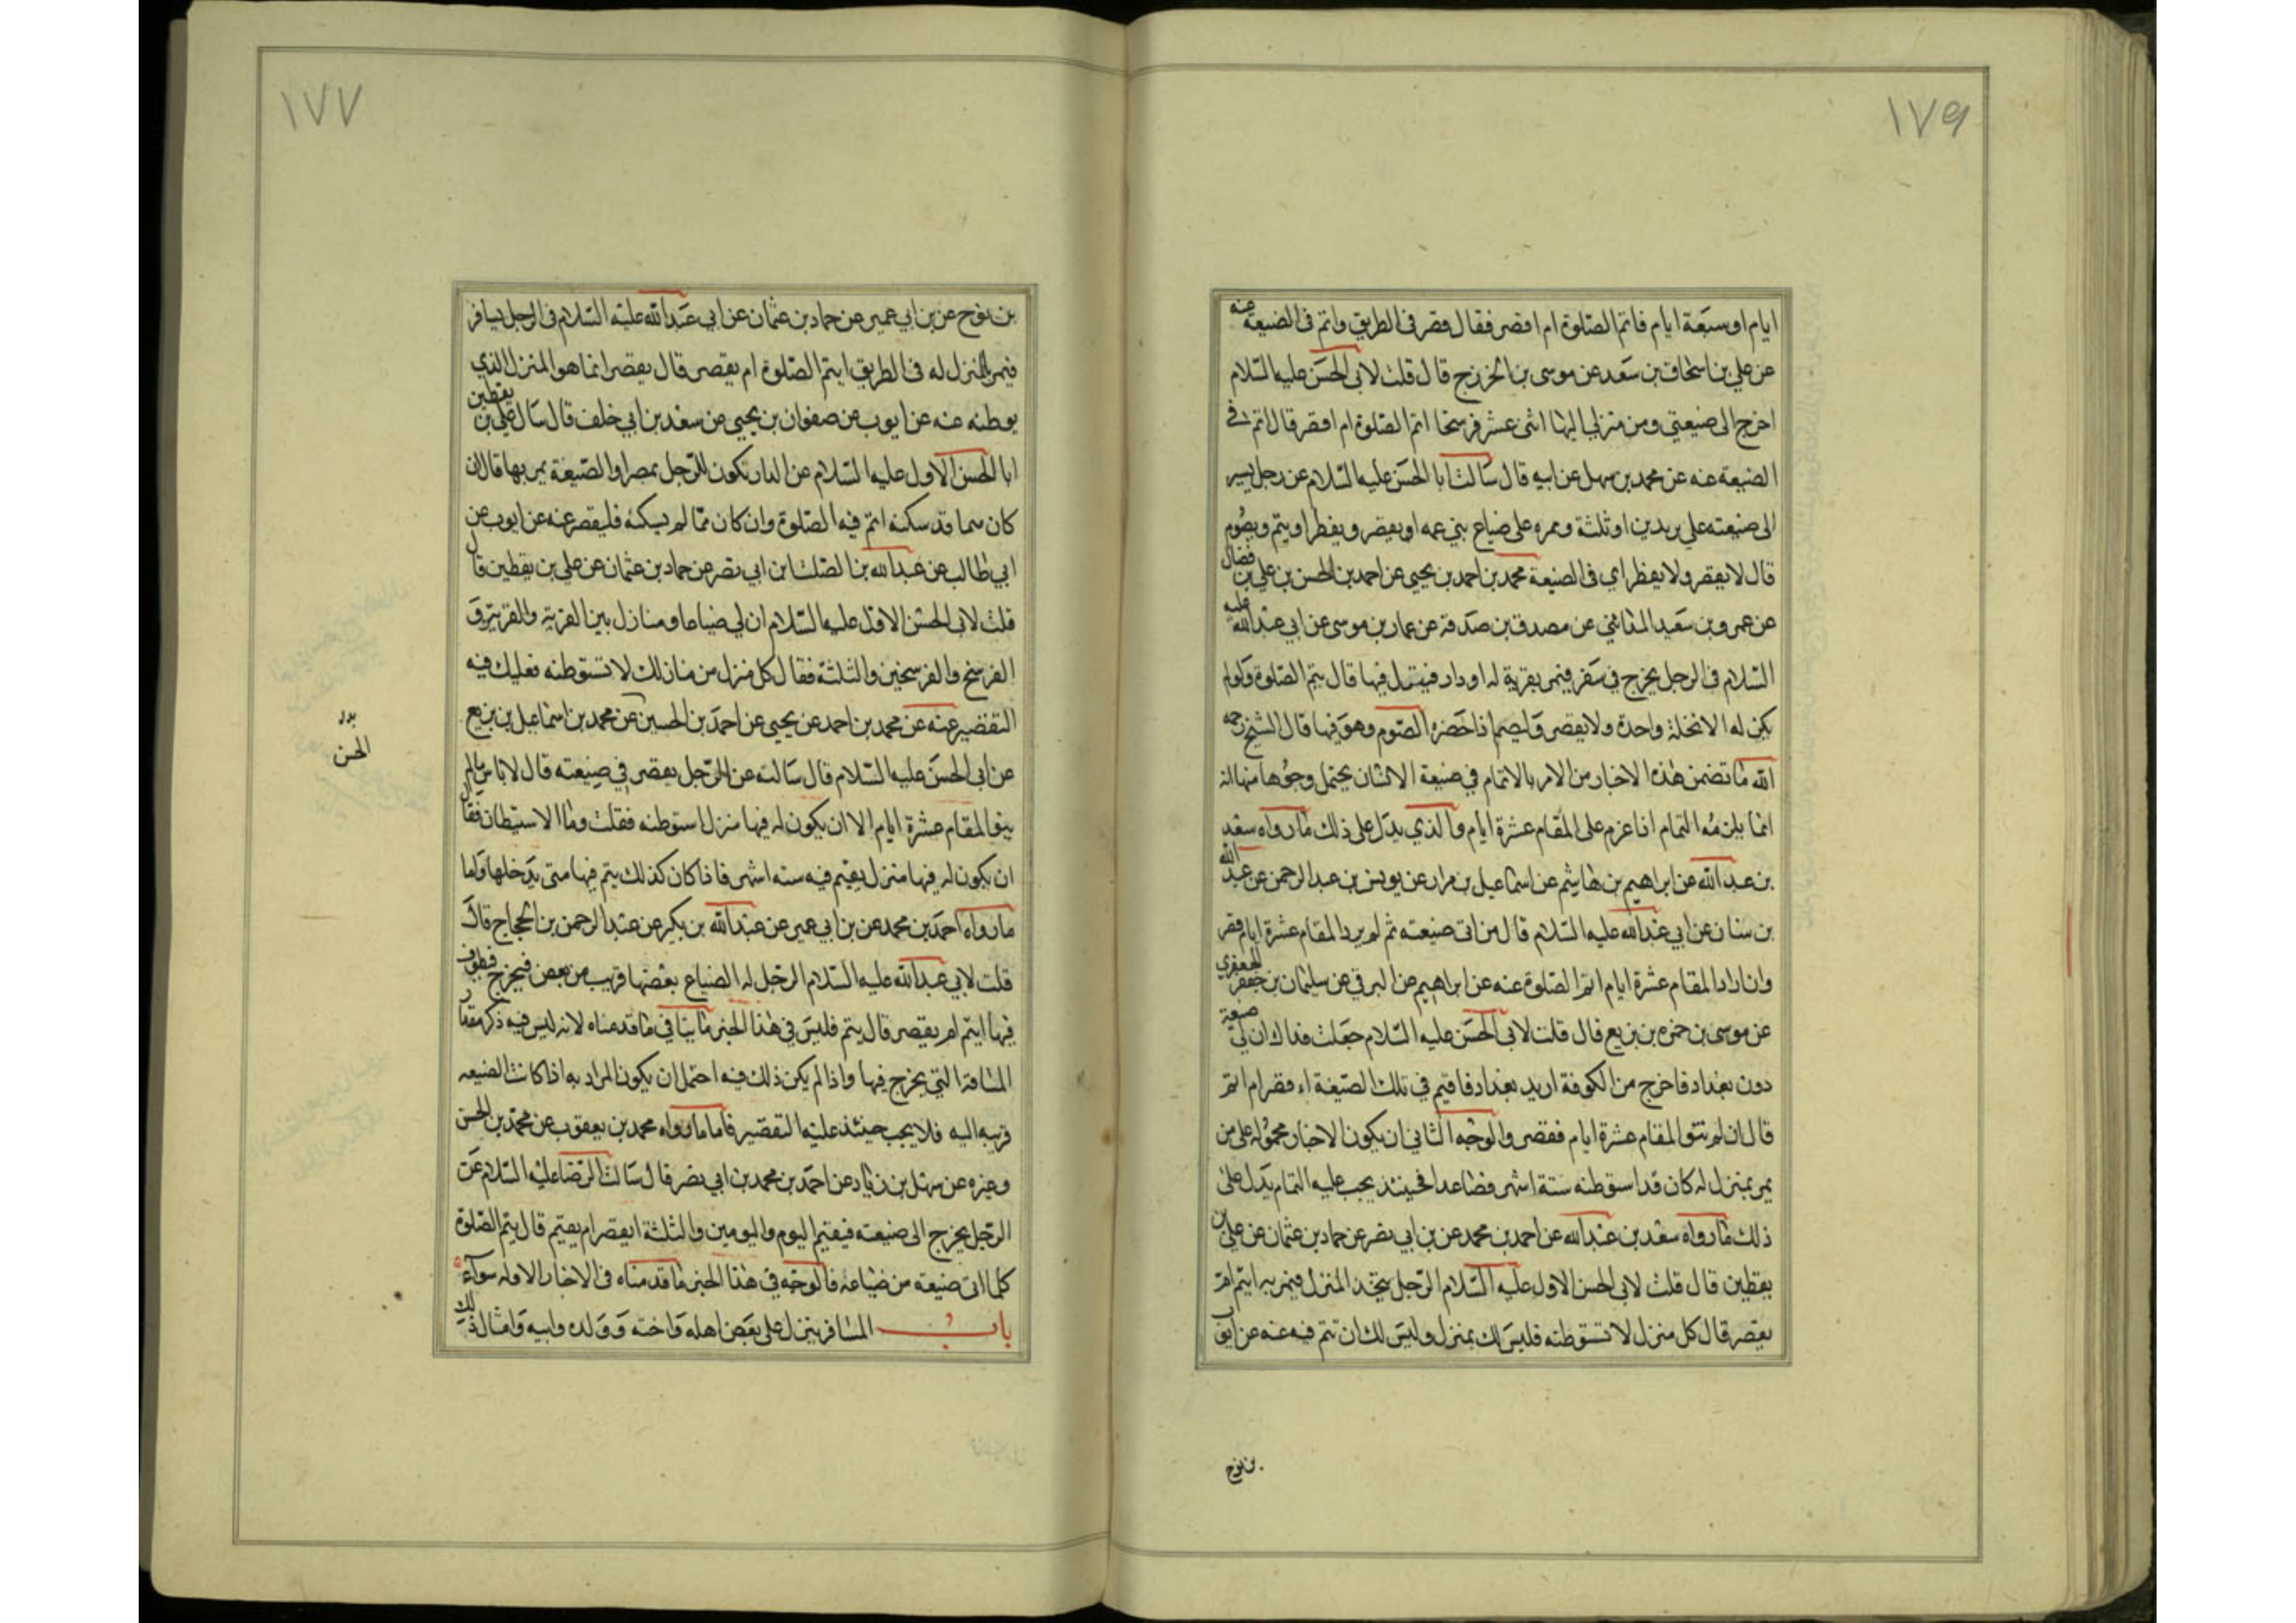 ١٧٦
ايام او سبعة ايام فاتم الصلوة ام اقصر فقال قصر فى الطريق واتم فى الضيعة عنه
عن علي بن اسحاق بن سعد عن موسى بن الخزرج قال قلت لابى الحسن عليه السلام
اخرج الى ضيعتي ومن منزلي اليها اثنى عشر فرسخا اتم الصلوة ام اقصر قال اتم فى
الضيعة عنه عن محمد بن سهل عن ابيه قال سالت ابا الحسن عليه السلام عن رجل يسير
الى ضيعته علي بريدين او ثلثة وممره على ضياع بني عمه او يقصر و يفطر او يتم ويصوم
قال لا يقصر ولا يفطر اي فى الضيعة محمد بن احمد بن يحيى عن احمد بن الحسن بن علي بن فضال
عن عمرو بن سعيد المدائني عن مصدق بن صدقة عن عمار بن موسى عن ابي عبد الله عليه
السلام فى الرجل يخرج في سفر فيمر بقرية له او دار فينزل فيها قال يتم الصلوة ولو لم
يكن له الا نخلة واحدة ولا يقصر وليصم اذا حضره الصوم وهو فيها قال الشيخ رحمه
الله ما تضمن هذه الاخبار من الامر بالاتمام في ضيعة الانسان يحتمل وجوها منها انه
انما يلزمه التمام اذا عزم على المقام عشرة ايام والذي يدل على ذلك ما رواه سعد
بن عبد الله عن ابراهيم بن هاشم عن اسماعيل بن مرار عن يونس بن عبد الرحمن عن عبد الله
بن سنان عن ابي عبد الله عليه السلام قال من اتى ضيعته ثم لم يرد المقام عشرة ايام قصر
وان اراد المقام عشرة ايام اتم الصلوة عنه عن ابراهيم عن البرقي عن سليمان بن جعفر الجعفري
عن موسى بن حمزه بن بزيع قال قلت لابى الحسن عليه السلام جعلت فداك ان لي ضيعة
دون بغداد فاخرج من الكوفة اريد بغداد فاقيم في تلك الضيعة اء قصر ام اتم
قال ان لم تنو المقام عشرة ايام فقصر والوجه الثاني ان يكون الاخبار محمولة على من
يمر بمنزل له كان قد استوطنه ستة اشهر فصاعدا فحينئذ يجب عليه التمام يدل على
ذلك ما رواه سعد بن عبد الله عن احمد بن محمد عن بن ابي نصر عن حماد بن عثمان عن علي بن
يقطين قال قلت لابى الحسن الاول عليه السلام الرجل يتخذ المنزل فيمر به ايتم ام
يقصر قال كل منزل لا تستوطنه فليس لك بمنزل وليس لك ان تتم فيه عنه عن ايوب
بن نوح
١٧٧
بن نوح عن بن ابي عمير عن حماد بن عثمان عن ابي عبد الله عليه السلام فى الرجل يسافر
فيمر بالمنزل له فى الطريق ايتم الصلوة ام يقصر قال يقصر انما هو المنزل الذي
يوطنه عنه عن ايوب عن صفوان بن يحيى عن سعد بن ابي خلف قال سال علي بن يقطين
ابا الحسن الاول عليه السلام عن الدار تكون للرجل بمصر او الضيعة يمر بها قال ان
كان مما قد سكنه اتم فيه الصلوة وان كان مما لم يسكنه فليقصر عنه عن ايوب عن
ابي طالب عن عبد الله بن الصلت ابن ابي نصر عن حماد بن عثمان عن علي بن يقطين قال
قلت لابى الحسن الاول عليه السلام ان لي ضياعا و منازل بين القرية والقريتين
الفرسخ والفرسخين والثلثة فقال كل منزل من منازلك لا تستوطنه فعليك فيه
التقصير عنه عن محمد بن احمد عن يحيى عن احمد بن الحسين عن محمد بن اسماعيل بن بزيع
بدر
الحسن
عن ابى الحسن عليه السلام قال سالته عن الرجل يقصر في ضيعته قال لا باس ما لم
ينو المقام عشرة ايام الا ان يكون له فيها منزل استوطنه فقلت وما الاستيطان فقال
ان يكون له فيها منزل يقيم فيه سته اشهر فاذا كان كذلك يتم فيها متى يدخلها واما
ما رواه احمد بن محمد عن بن ابي عمير عن عبد الله بن بكير عن عبد الرحمن بن الحجاج قال
قلت لابي عبد الله عليه السلام الرجل له الضياع بعضها قريب من بعض فيخرج فيطوف
فيها ايتم ام يقصر قال يتم فليس في هذا الخبر ما ينافي ما قدمناه لانه ليس فيه ذكر مقدار
المسافة التي يخرج فيها واذا لم يكن ذلك فيه احتمل ان يكون المراد به اذا كانت الضيعه
قريبه اليه فلا يجب حينئذ عليه التقصير فاما ما رواه محمد بن يعقوب عن محمد بن الحسن
وغيره عن سهل بن زياد عن احمد بن محمد بن ابي نصر قال سالت الرضا عليه السلام عن
الرجل يخرج الى ضيعته فيقيم اليوم واليومين والثلثة ايقصر ام يقيم قال يتم الصلوة
كلما اتى ضيعته من ضياعه فالوجه في هذا الخبر ما قدمناه فى الاخبار الاوله سواء
باب المسافر ينزل على بعض اهله واخته وولده وابيه وامثال ذلك